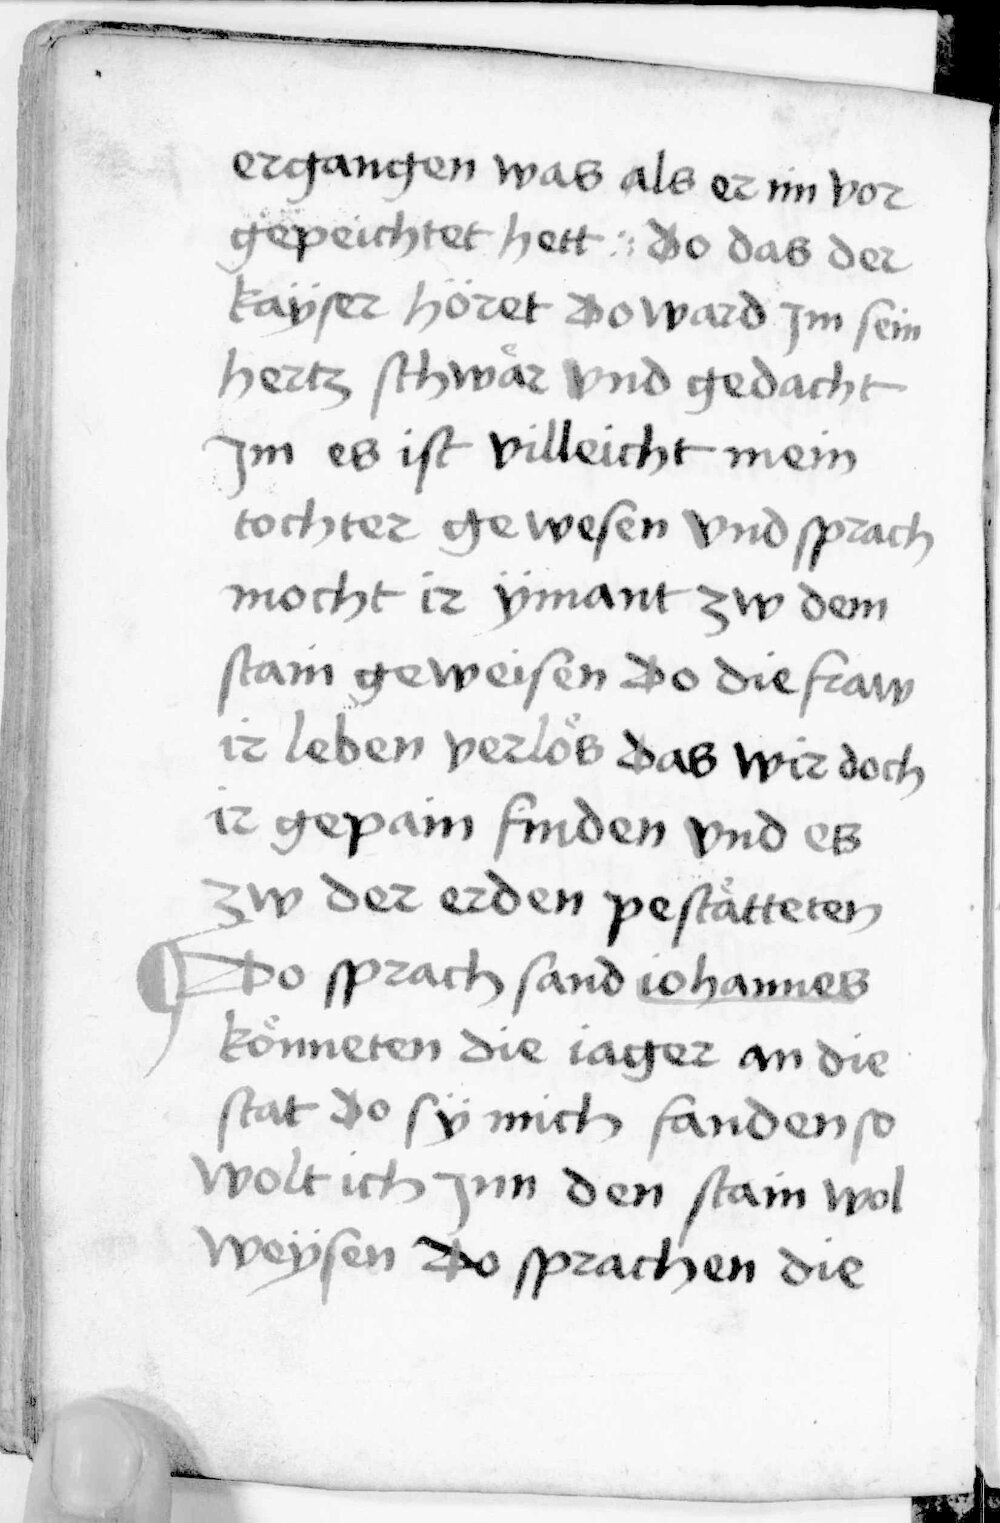 ergangen was als er im vor
gepeichtet hett :· Do das der
kaÿser höret Do ward Jm sein
hertz schwär vnd gedacht
Jm es ist villeicht mein
tochter gewesen vnd sprach
mocht ir ÿmant zw dem
stain geweisen Do die fraw
ir leben verlös Das wir doch
ir gepain finden vnd es
zw der erden pestätteten
Do sprach sand iohannes
könneten die iager an die
stat Do sÿ mich fanden so
wolt ich Jnn den stain wol
weÿsen Do sprachen die